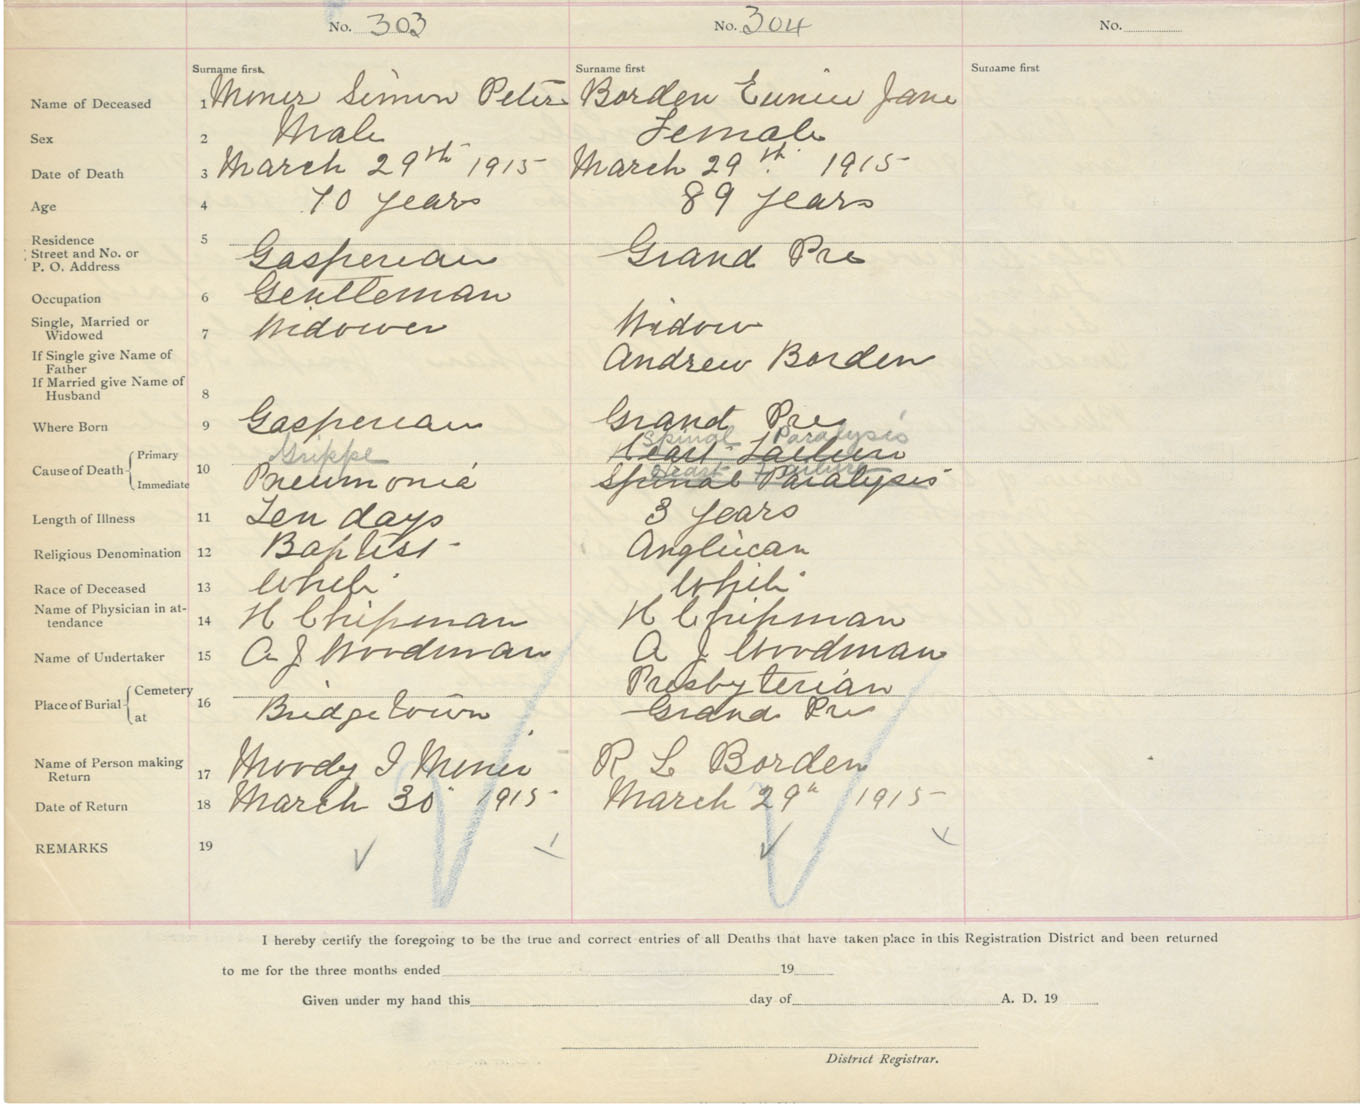 No. 303 No. 304 No.
Surname first Surname first Surname first
Name of Deceased 1 Simon Peter Borden Eunice Jane
Sex 2 Male Female
Date of Death 3 March 29th 1915 March 29th 1915
Age 4 70 years 89 years
Residence 5
Street and No. or
P. O. Address Gaspereau Grand Pre
Occupation 6 Gentleman
Single, Married or
Widowed 7 Widower Widow
If Single give Name of
Father Andrew Borden
If Married give Name of
Husband 8
Where Born 9 Gaspereau Grand Pre
Spinal Paralysis
Cause of Death Primary 10 Grippe Heart Failure
Heart Failure
Immediate Pneumonia Spinal Paralysis
Length of Illness 11 Ten days 3 years
Religious Denomination 12 Baptist Anglican
Race of Deceased 13 White White
Name of Physician in at-
tendance 14 H Chipman H Chipman
Name of Undertaker 15 A J Woodman A J Woodman
Place of Burial Cemetery 16 Presbyterian
at Bridgetown Grand Pre
Name of Person making
Return 17 Moody I R L Borden
Date of Return 18 March 30 1915 March 29th 1915
REMARKS 19
I hereby certify the foregoing to be the true and correct entries of all Deaths that have taken place in this Registration District and been returned
to me for the three months ended 19
Given under my hand this day of A. D. 19
District Registrar.